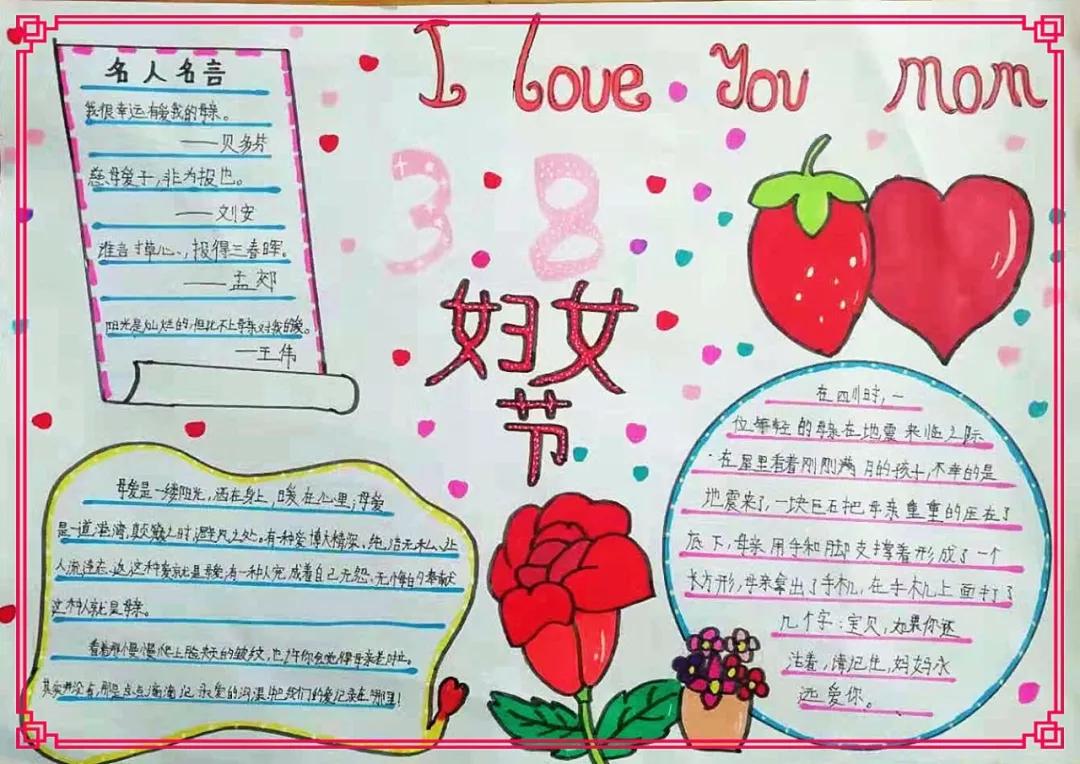 I Love You Mom
38
妇女
节
名人名言
我很幸运有爱我的母亲。
——贝多芬
慈母爱子,非为报也。
——刘安
谁言寸草心、,报得三春晖。
——孟郊
阳光是灿烂的,但比不上母亲对我的爱。
—王伟
母爱是一缕阳光,洒在身上,暖在心里;母爱
是一道港湾,颠簸之时,避风之处。有种爱博大精深、纯洁无私、让
人流连忘返,这种爱就是母爱;有一种人完成着自己无怨、无悔的奉献
这种人就是母亲。
看着那慢慢爬上脸庞的皱纹,也许你会觉得母亲老啦。
其实并没有,那是点点滴滴记录爱的沟渠,把我们的爱记录在那里!
在四川时,一
位年轻的母亲在地震来临之际
在屋里看着刚刚满月的孩子,不幸的是
地震来了,一块巨石把母亲重重的压在了
底下,母亲用手和脚支撑着形成了一个
长方形,母亲拿出了手机,在手机上面打了
几个字:宝贝,如果你还
活着,请记住,妈妈永
远爱你。